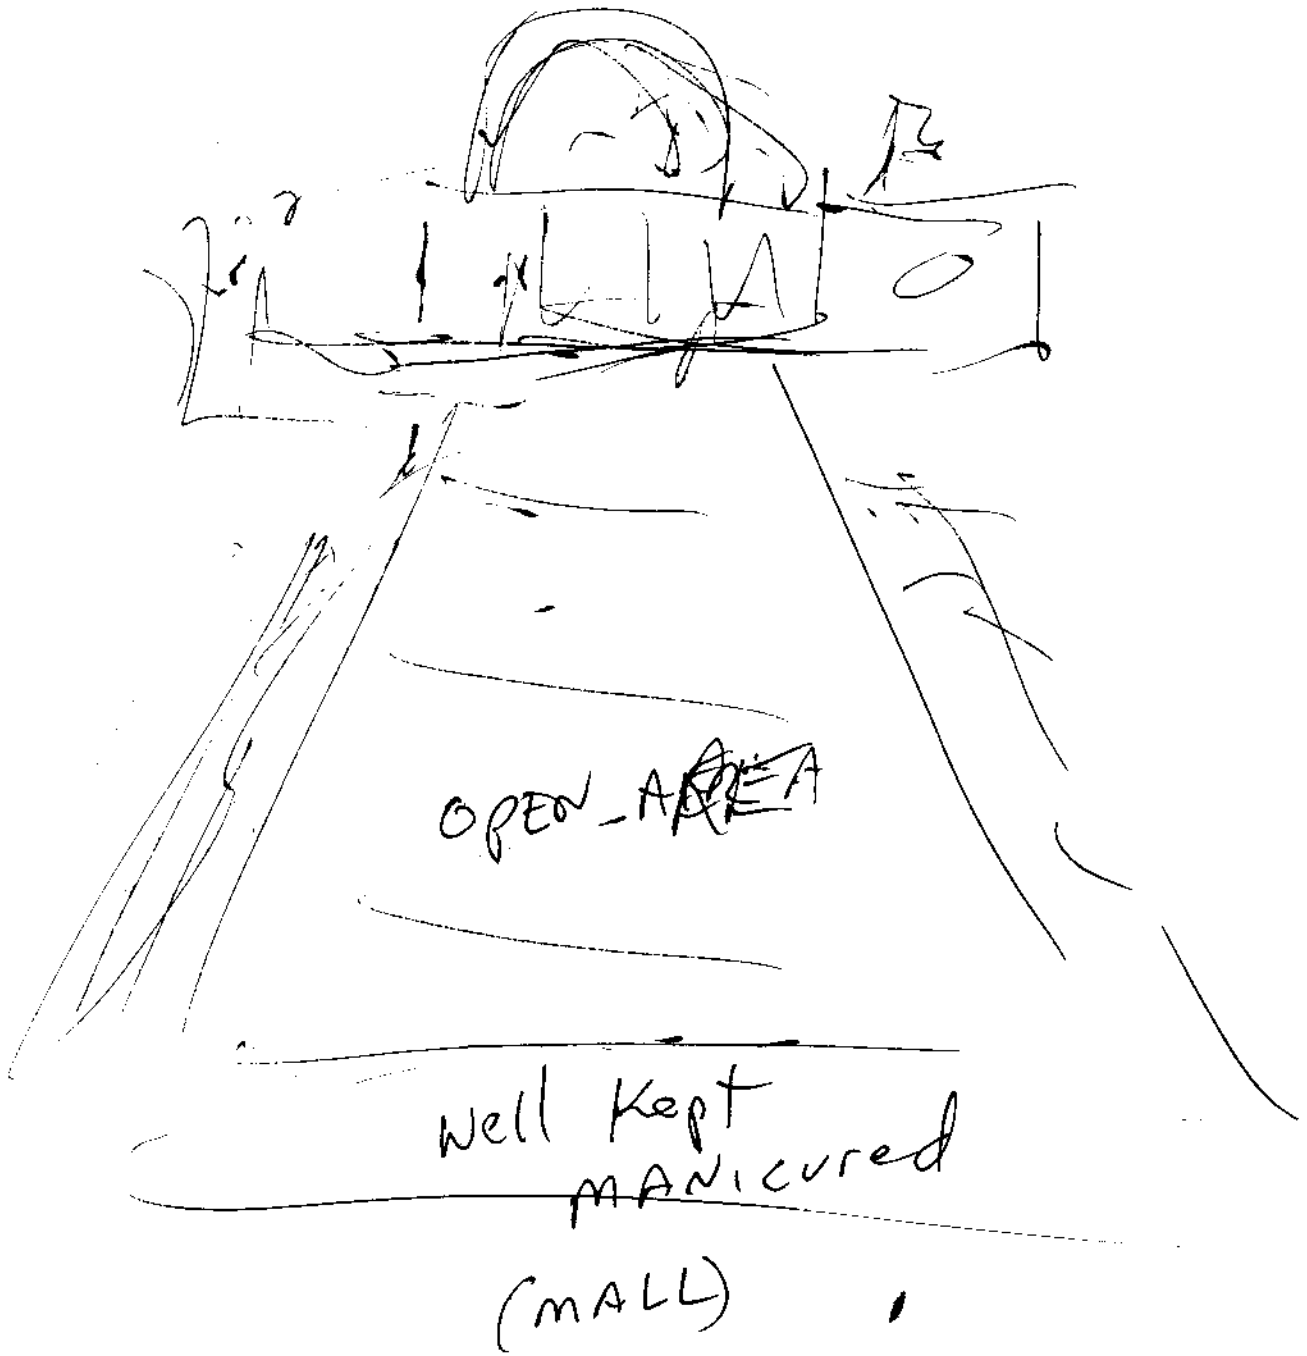 OPEN_AREA
Well Kept
MANicured
(MALL)